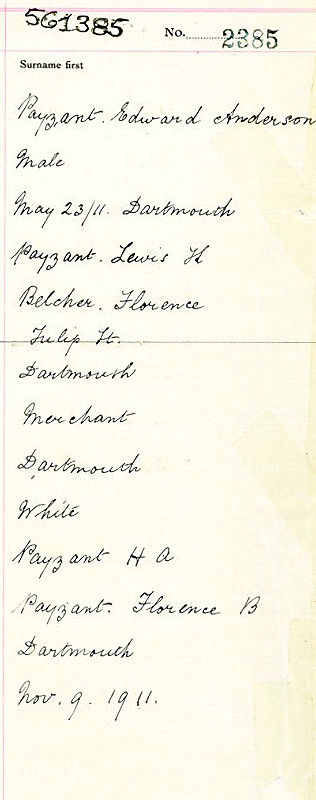 561385
No. 2385
Surname first
Payzant. Edward Anderson
Male
May 23/11. Dartmouth
Payzant. Lewis H
Belcher. Florence
Tulip St.
Dartmouth
Merchant
Dartmouth
White
Payzant H A
Payzant. Florence B
Dartmouth
Nov. 9. 1911.